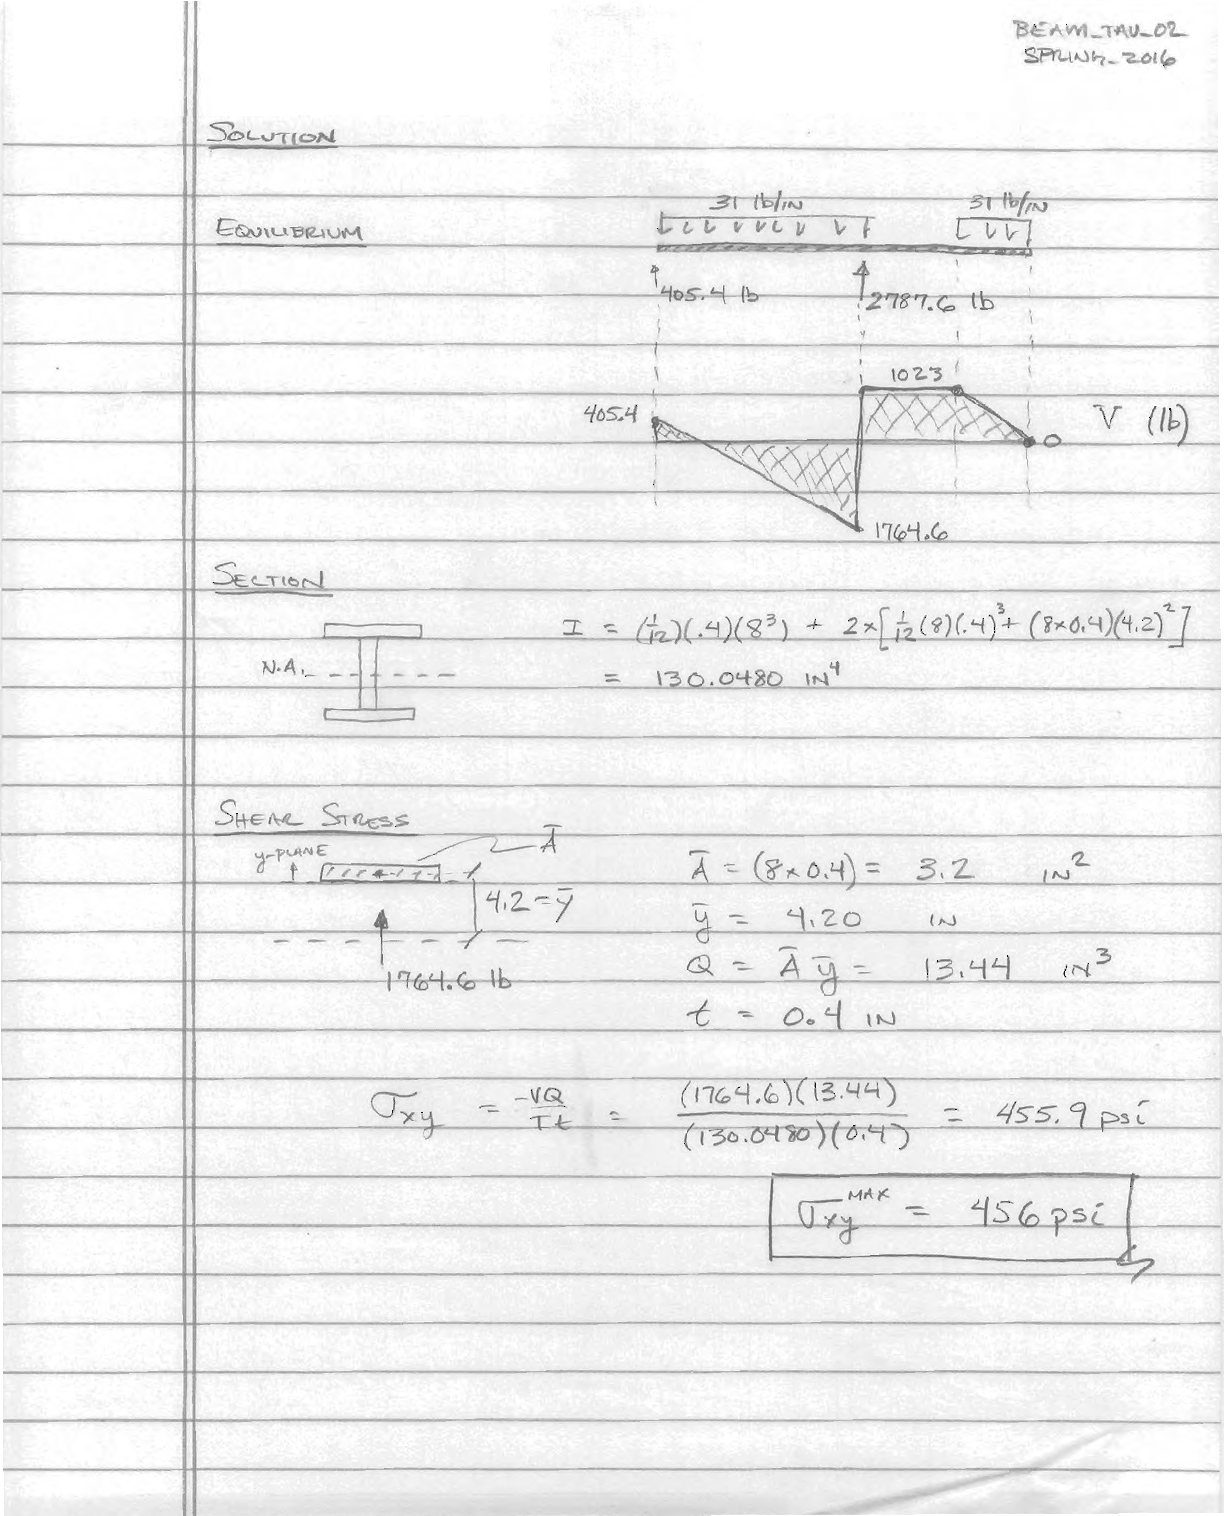 BEAM_TAU_02
SPRING_2016
SOLUTION
31 lb/IN 31 lb/IN
EQUILIBRIUM
405.4 lb 2787.6 lb
1023
405.4 0 V (lb)
1764.6
SECTION
I = (1/12)(.4)(8³) + 2×[1/12(8)(.4)³ + (8×0.4)(4.2)²]
N.A. = 130.0480 IN⁴
SHEAR STRESS
y-PLANE A̅ A̅ = (8×0.4) = 3.2 IN²
4.2 = y̅ y̅ = 4.20 IN
1764.6 lb Q = A̅ y̅ = 13.44 IN³
t = 0.4 IN
σxy = -VQ/It = (1764.6)(13.44)/(130.0480)(0.4) = 455.9 psi
σxy MAX = 456 psi